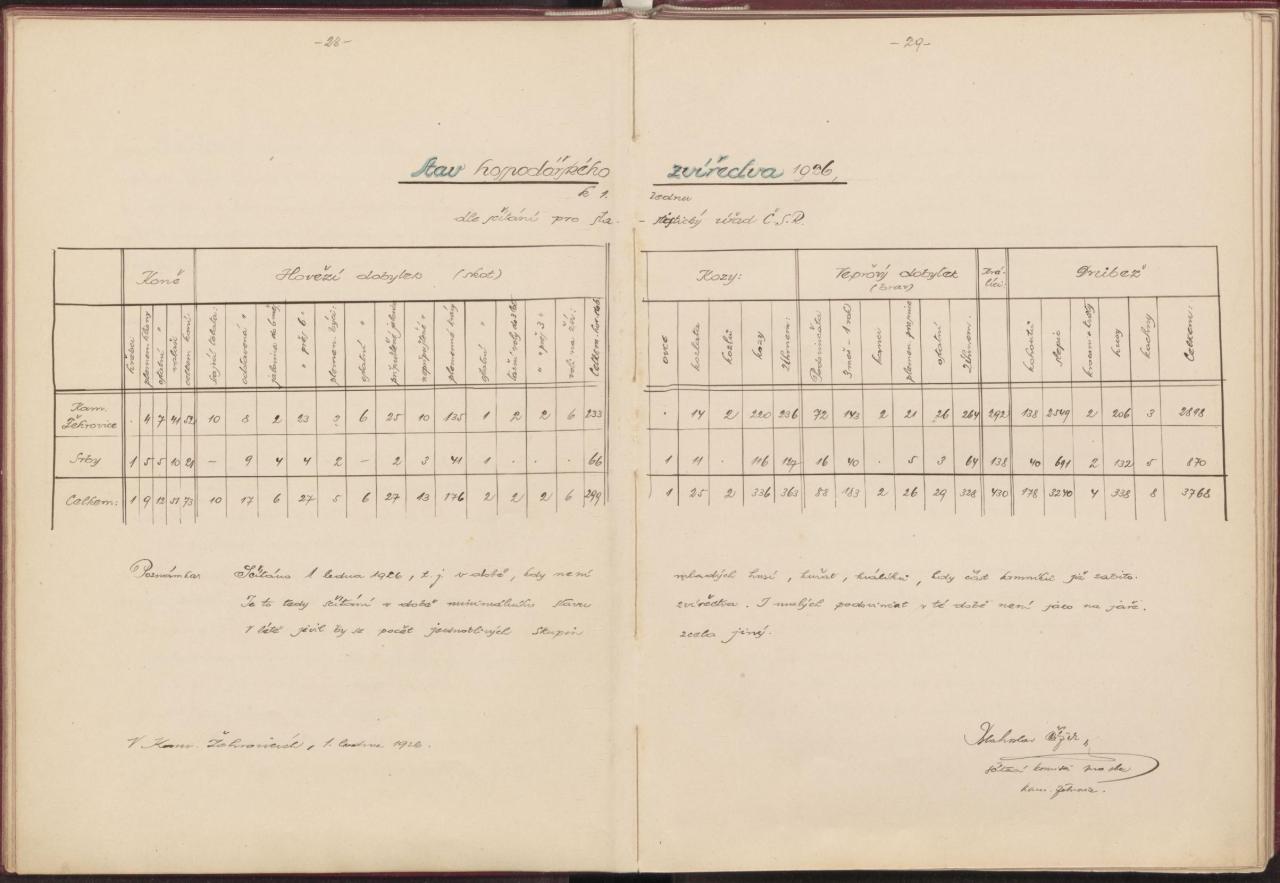 -28-
-29-
Stav hospodářského zvířectva 1926,
k 1. lednu
dle sčítání pro sta- tistický úřad Č.S.R.
Koně Hovězí dobytek (skot) Kozy: Vepřový dobytek (brav) Králíci: Drůbež
hříbata plemen. klisny ostatní " valaši celkem koní odstavená " " přes 6 " plemen. býci ostatní " plemenné krávy ostatní " " přes 3 " Celkem hov. dob. ovce kozlata kozlů kozy Úhrnem: Podsvinčata 3 měs - 1 rok kanci plemen. prasnice ostatní Úhrnem: kohoutů slepic husy kachny Celkem:
Kam. Žehrovice . 4 7 41 52 10 8 2 23 3 6 25 10 135 1 2 2 6 233 . 14 2 220 236 72 143 2 21 26 264 292 138 2549 2 206 3 2898
Srby 1 5 5 10 21 – 9 4 4 2 – 2 3 41 1 . . . 66 1 11 . 116 127 16 40 . 5 3 64 138 40 691 2 132 5 870
Celkem: 1 9 12 51 73 10 17 6 27 5 6 27 13 176 2 2 2 6 299 1 25 2 336 363 88 183 2 26 29 328 430 178 3240 4 338 8 3768
Poznámka: Sčítáno 1 ledna 1926, t. j. v době, kdy není mladých husí, kuřat, králíků, kdy část krmníků již zabito.
Je to tedy sčítání v době minimálního stavu zvířectva. I malých podsvinčat v té době není jako na jaře.
V létě jevil by se počet jednotlivých skupin zcela jiný.
V Kam. Žehrovicích, 1. ledna 1926.
sčítací komisař pro obec
Kam. Žehrovice.